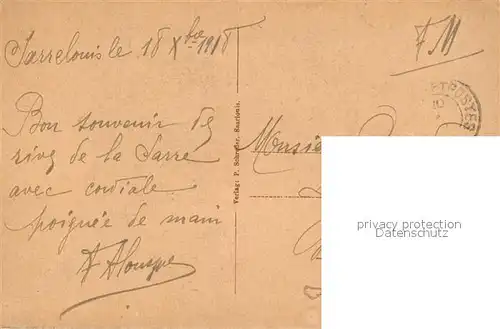 Sarrelouis le 18 Xbre 1918
FM
Bon souvenir des
rives de la Sarre
avec cordiale
poignée de main
Verlag: P. Schreder, Saarlouis.
Monsieur
ET POSTES
10
privacy protection
Datenschutz